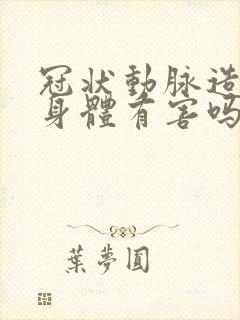 冠狀動脈造
身體有害嗎
葉夢圓